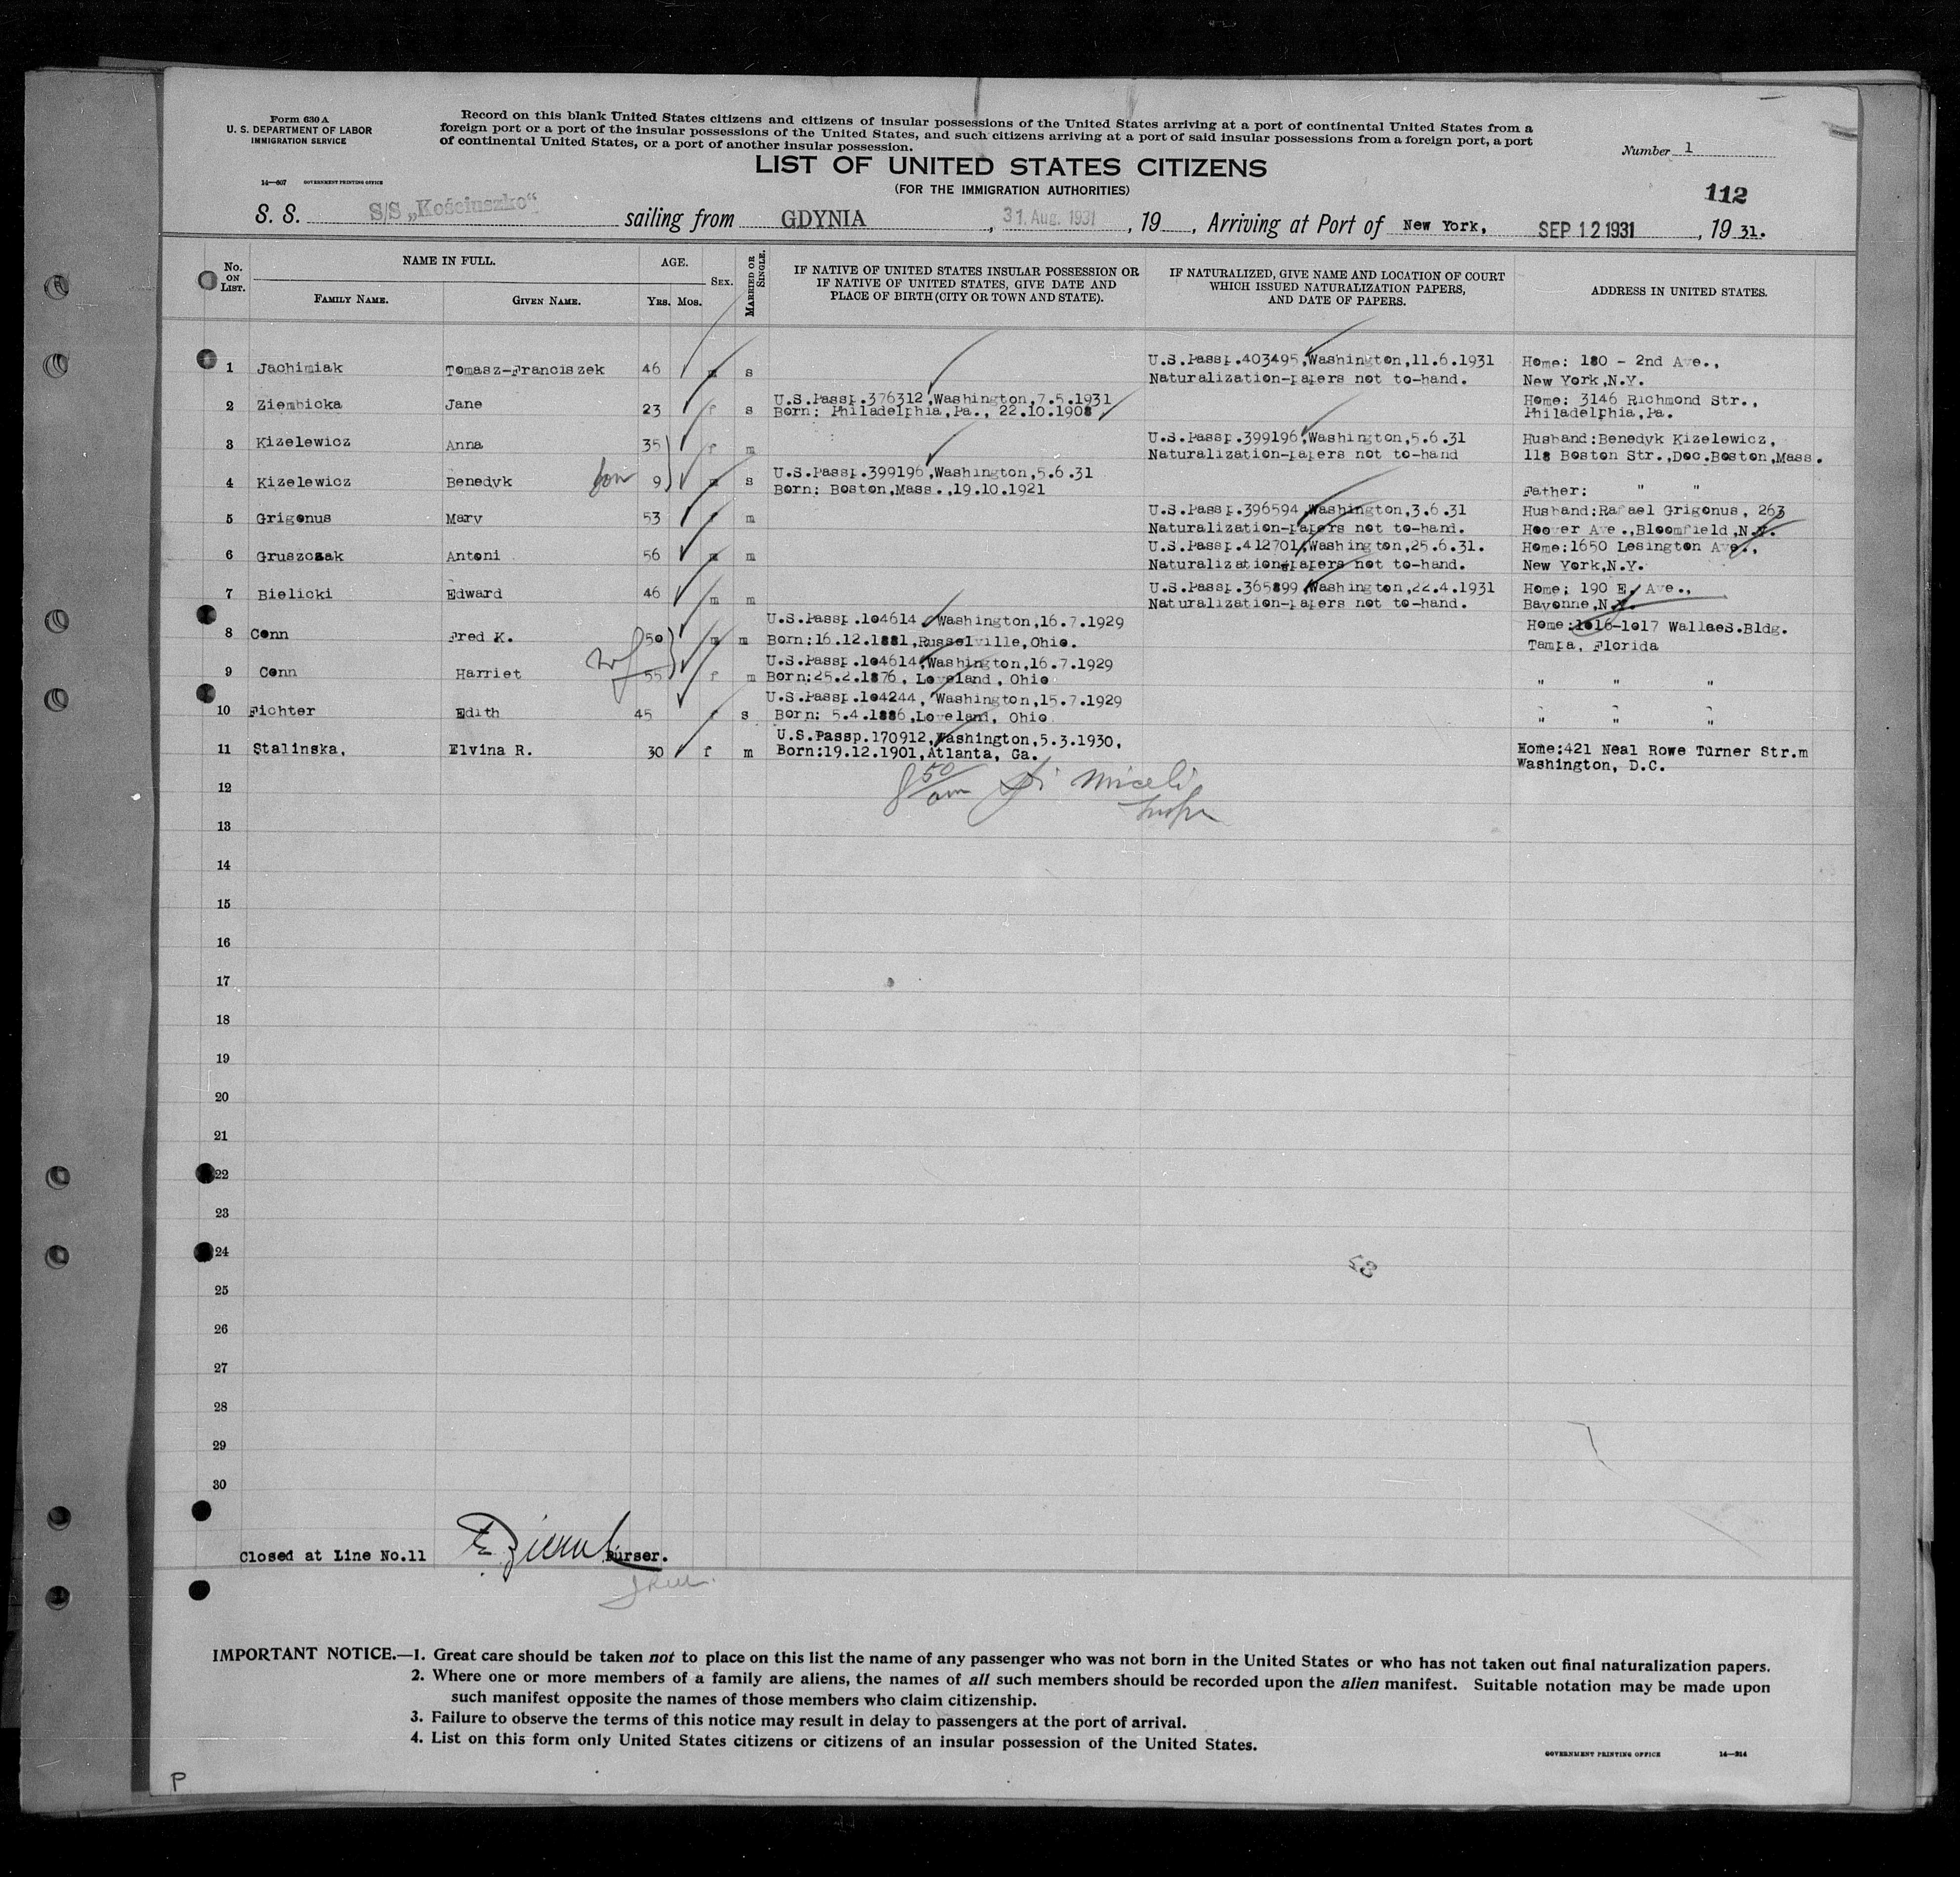 Form 630 A
U. S. DEPARTMENT OF LABOR
IMMIGRATION SERVICE
14—607 GOVERNMENT PRINTING OFFICE
Record on this blank United States citizens and citizens of insular possessions of the United States arriving at a port of continental United States from a
foreign port or a port of the insular possessions of the United States, and such citizens arriving at a port of said insular possessions from a foreign port, a port
of continental United States, or a port of another insular possession.
Number 1
LIST OF UNITED STATES CITIZENS
(FOR THE IMMIGRATION AUTHORITIES)
112
S. S. S/S „Kościuszko“ sailing from GDYNIA, 31. Aug. 1931, 19 , Arriving at Port of New York, SEP 12 1931, 19 31.
No. ON LIST.
NAME IN FULL.
FAMILY NAME.
GIVEN NAME.
AGE.
YRS. MOS.
SEX.
MARRIED OR SINGLE.
IF NATIVE OF UNITED STATES INSULAR POSSESSION OR
IF NATIVE OF UNITED STATES, GIVE DATE AND
PLACE OF BIRTH (CITY OR TOWN AND STATE).
IF NATURALIZED, GIVE NAME AND LOCATION OF COURT
WHICH ISSUED NATURALIZATION PAPERS,
AND DATE OF PAPERS.
ADDRESS IN UNITED STATES.
1 Jachimiak Tomasz-Franciszek 46 m s U.S.Passp.403495,Washington,11.6.1931 Home: 180 - 2nd Ave.,
Naturalization-papers not to-hand. New York,N.Y.
2 Ziembicka Jane 23 f s U.S.Passp.376312,Washington,7.5.1931 Home: 3146 Richmond Str.,
Born: Philadelphia,Pa., 22.10.1908 Philadelphia,Pa.
3 Kizelewicz Anna 35 f m U.S.Passp.399196,Washington,5.6.31 Husband:Benedyk Kizelewicz,
Naturalization-papers not to-hand 118 Boston Str.,Doc.Boston,Mass.
4 Kizelewicz Benedyk son 9 m s U.S.Passp.399196,Washington,5.6.31
Born: Boston,Mass.,19.10.1921 Father: " "
5 Grigonus Mary 53 f m U.S.Passp.396594,Washington,3.6.31 Husband:Rafael Grigonus, 263
Naturalization-papers not to-hand. Hoover Ave.,Bloomfield,N.Y.
6 Gruszczak Antoni 56 m m U.S.Passp.412701,Washington,25.6.31. Home:1650 Lesington Ave.,
Naturalization-papers not to-hand. New York,N.Y.
7 Bielicki Edward 46 m m U.S.Passp.365899,Washington,22.4.1931 Home; 190 E. Ave.,
Naturalization-papers not to-hand. Bayonne,N.Y.
8 Conn Fred K. 50 m m U.S.Passp.104614,Washington,16.7.1929 Home:1016-1017 WallaeS.Bldg.
Born:16.12.1881,Russelville,Ohio. Tampa, Florida
9 Conn Harriet wf 55 f m U.S.Passp.104614,Washington,16.7.1929
Born:25.2.1876, Loveland, Ohio " " "
10 Fichter Edith 45 f s U.S.Passp.104244, Washington,15.7.1929
Born: 5.4.1886,Loveland, Ohio " " "
11 Stalinska, Elvina R. 30 f m U.S.Passp.170912,Washington,5.3.1930,
Born:19.12.1901,Atlanta, Ga. Home:421 Neal Rowe Turner Str.m
Washington, D.C.
12
8 50/am Miceli
Insp
13
14
15
16
17
18
19
20
21
22
23
24
25
26
27
28
29
30
Closed at Line No.11 Purser.
IMPORTANT NOTICE.—1. Great care should be taken not to place on this list the name of any passenger who was not born in the United States or who has not taken out final naturalization papers.
2. Where one or more members of a family are aliens, the names of all such members should be recorded upon the alien manifest. Suitable notation may be made upon
such manifest opposite the names of those members who claim citizenship.
3. Failure to observe the terms of this notice may result in delay to passengers at the port of arrival.
4. List on this form only United States citizens or citizens of an insular possession of the United States.
GOVERNMENT PRINTING OFFICE 14—214
P